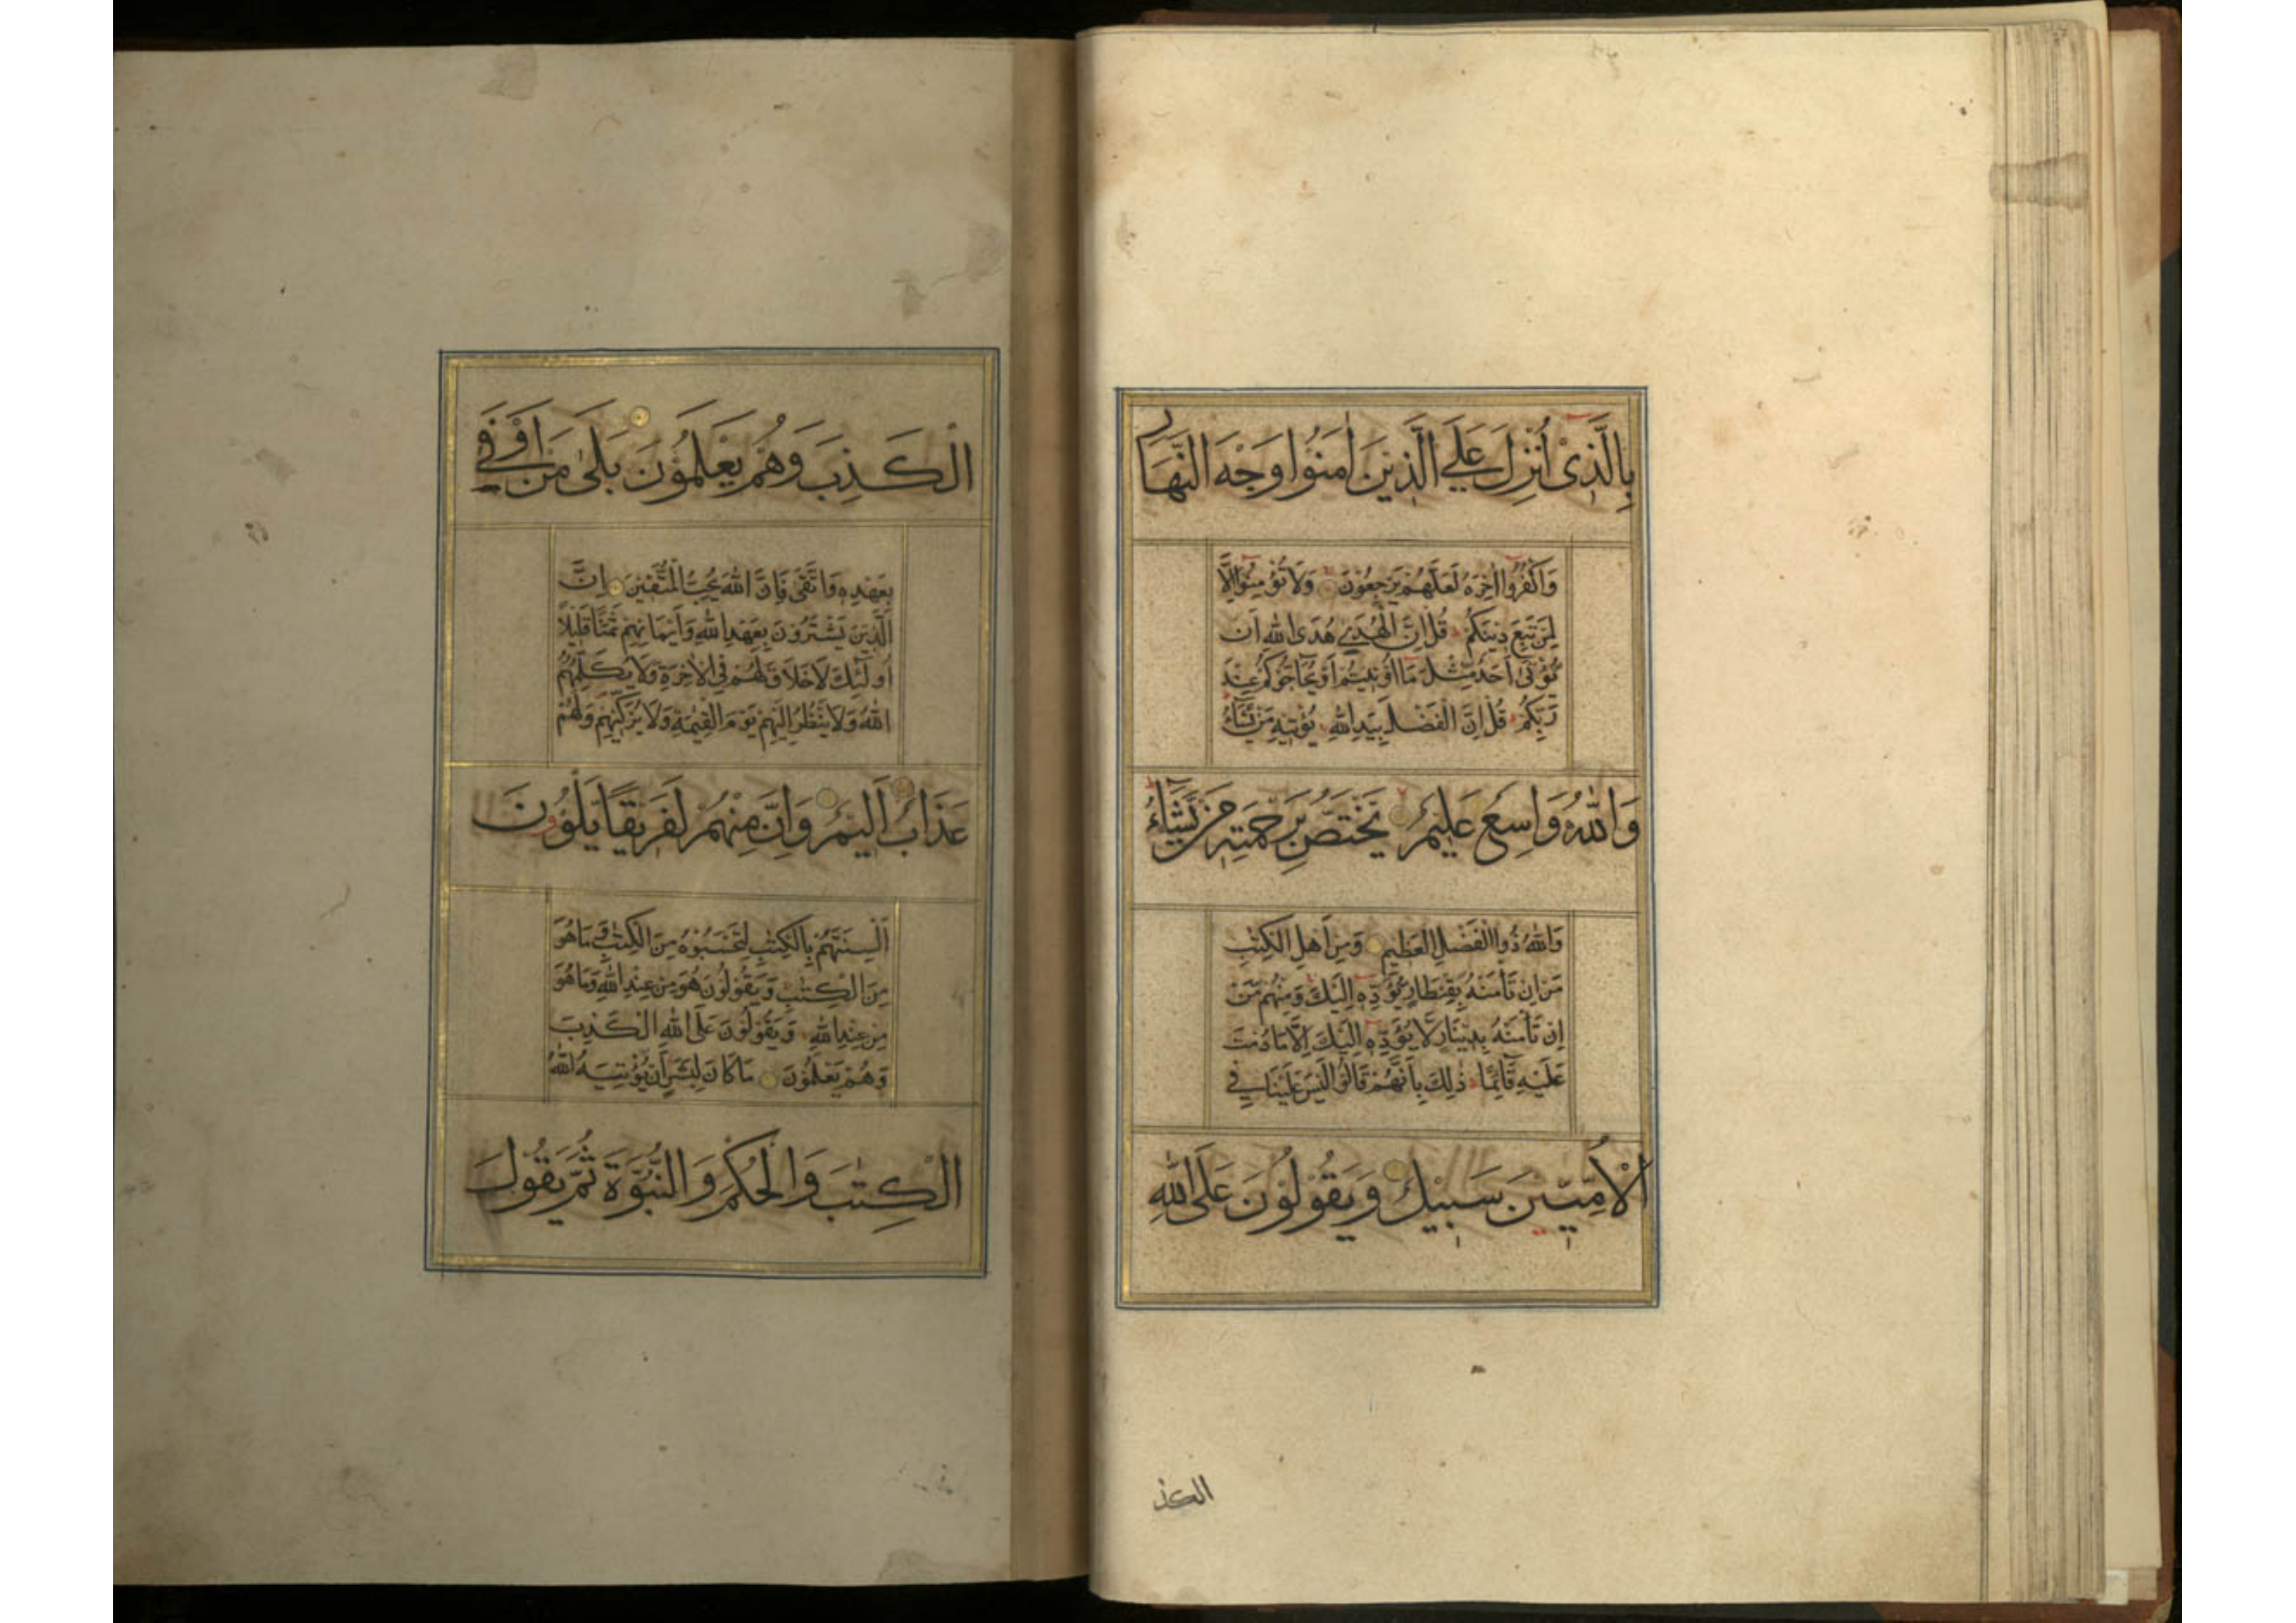 بِالَّذِىْ اُنْزِلَ عَلَى الَّذِيْنَ اٰمَنُوْا وَجْهَ النَّهَارِ
وَاكْفُرُوْا اٰخِرَهُ لَعَلَّهُمْ يَرْجِعُوْنَ وَلَا تُؤْمِنُوْا اِلَّا
لِمَنْ تَبِعَ دِيْنَكُمْ قُلْ اِنَّ الْهُدٰى هُدَى اللّٰهِ اَنْ
يُّؤْتٰى اَحَدٌ مِّثْلَ مَا اُوْتِيْتُمْ اَوْ يُحَاجُّوْكُمْ عِنْدَ
رَبِّكُمْ قُلْ اِنَّ الْفَضْلَ بِيَدِ اللّٰهِ يُؤْتِيْهِ مَنْ يَّشَآءُ
وَاللّٰهُ وَاسِعٌ عَلِيْمٌ يَخْتَصُّ بِرَحْمَتِهٖ مَنْ يَّشَآءُ
وَاللّٰهُ ذُو الْفَضْلِ الْعَظِيْمِ وَمِنْ اَهْلِ الْكِتٰبِ
مَنْ اِنْ تَأْمَنْهُ بِقِنْطَارٍ يُّؤَدِّهٖ اِلَيْكَ وَمِنْهُمْ مَّنْ
اِنْ تَأْمَنْهُ بِدِيْنَارٍ لَّا يُؤَدِّهٖ اِلَيْكَ اِلَّا مَا دُمْتَ
عَلَيْهِ قَآئِمًا ذٰلِكَ بِاَنَّهُمْ قَالُوْا لَيْسَ عَلَيْنَا فِى
الْاُمِّيّٖنَ سَبِيْلٌ وَيَقُوْلُوْنَ عَلَى اللّٰهِ
الكذ
الْكَذِبَ وَهُمْ يَعْلَمُوْنَ بَلٰى مَنْ اَوْفٰى
بِعَهْدِهٖ وَاتَّقٰى فَاِنَّ اللّٰهَ يُحِبُّ الْمُتَّقِيْنَ اِنَّ
الَّذِيْنَ يَشْتَرُوْنَ بِعَهْدِ اللّٰهِ وَاَيْمَانِهِمْ ثَمَنًا قَلِيْلًا
اُولٰٓئِكَ لَا خَلَاقَ لَهُمْ فِى الْاٰخِرَةِ وَلَا يُكَلِّمُهُمُ
اللّٰهُ وَلَا يَنْظُرُ اِلَيْهِمْ يَوْمَ الْقِيٰمَةِ وَلَا يُزَكِّيْهِمْ وَلَهُمْ
عَذَابٌ اَلِيْمٌ وَاِنَّ مِنْهُمْ لَفَرِيْقًا يَّلْوٗنَ
اَلْسِنَتَهُمْ بِالْكِتٰبِ لِتَحْسَبُوْهُ مِنَ الْكِتٰبِ وَمَا هُوَ
مِنَ الْكِتٰبِ وَيَقُوْلُوْنَ هُوَ مِنْ عِنْدِ اللّٰهِ وَمَا هُوَ
مِنْ عِنْدِ اللّٰهِ وَيَقُوْلُوْنَ عَلَى اللّٰهِ الْكَذِبَ
وَهُمْ يَعْلَمُوْنَ مَا كَانَ لِبَشَرٍ اَنْ يُّؤْتِيَهُ اللّٰهُ
الْكِتٰبَ وَالْحُكْمَ وَالنُّبُوَّةَ ثُمَّ يَقُوْلَ